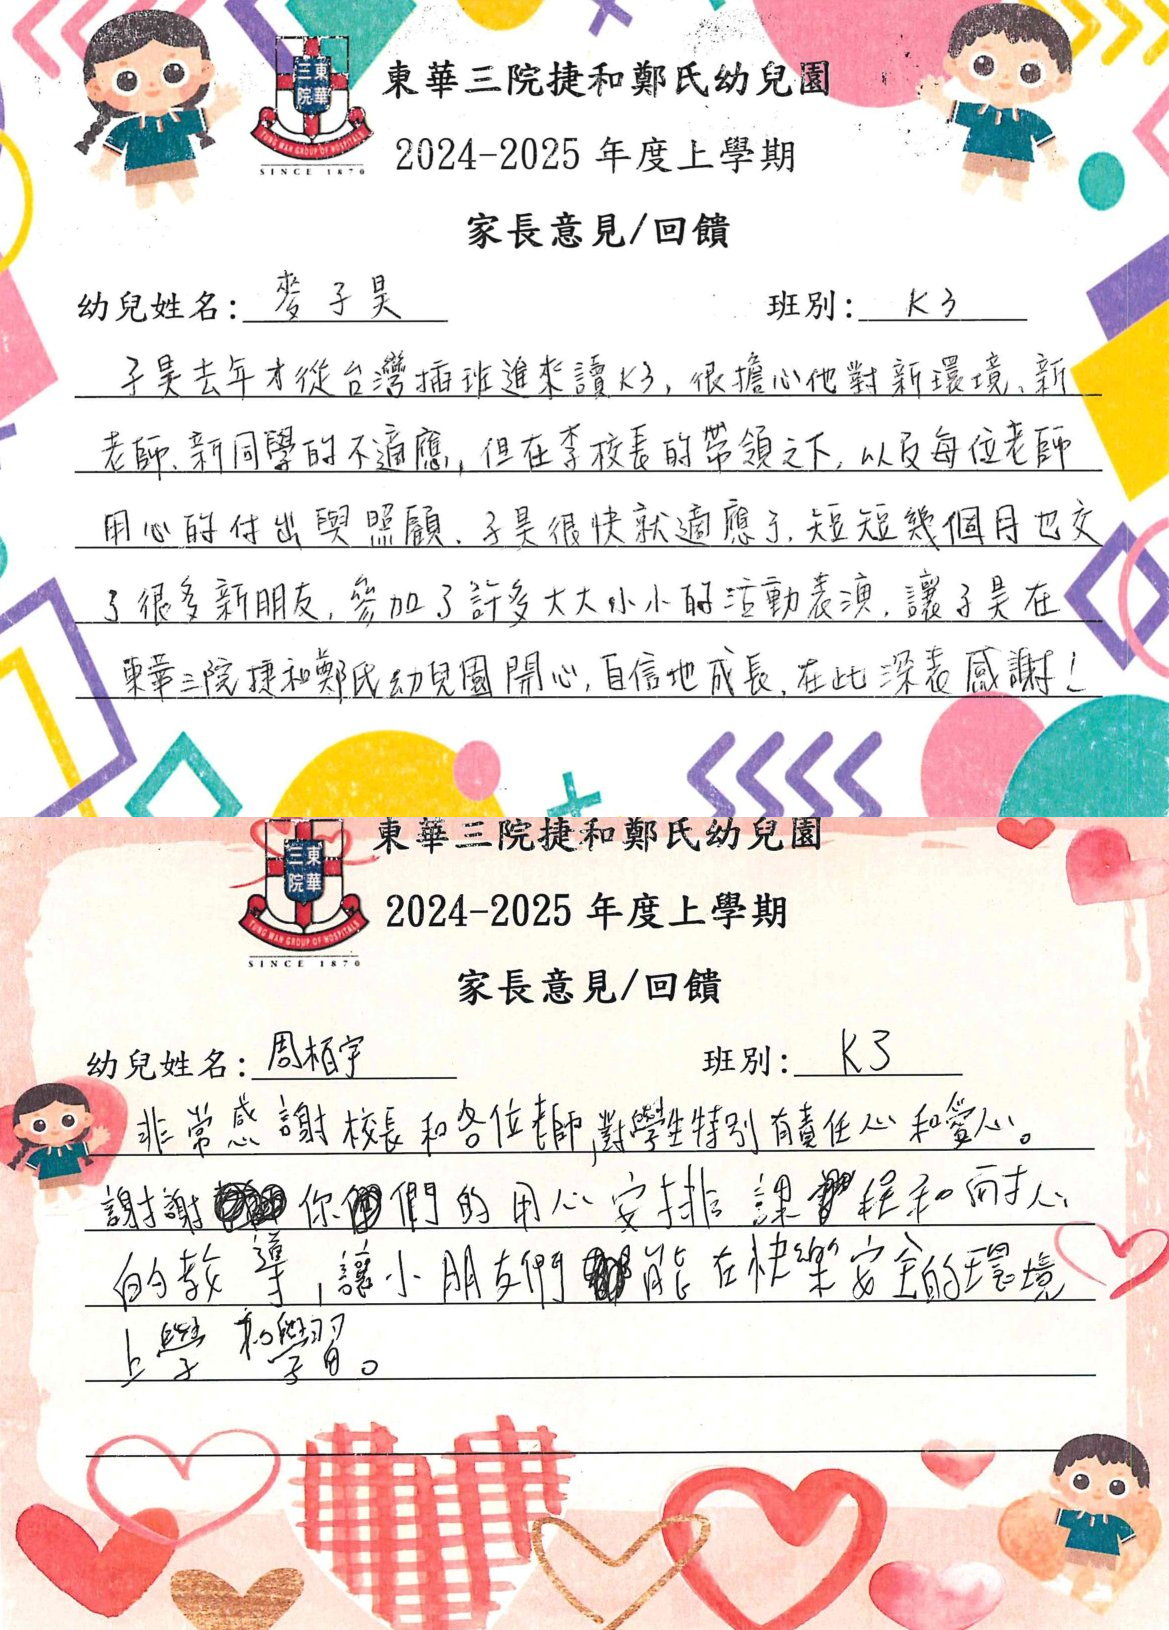 三東
院華
TUNG WAH GROUP OF HOSPITALS
SINCE 1870
東華三院捷和鄭氏幼兒園
2024-2025 年度上學期
家長意見/回饋
幼兒姓名: 麥子昊 班別: K3
子昊去年才從台灣插班進來讀K3, 很擔心他對新環境、新
老師、新同學的不適應, 但在李校長的帶領之下, 以及每位老師
用心的付出與照顧, 子昊很快就適應了, 短短幾個月也交
了很多新朋友, 參加了許多大大小小的活動表演, 讓子昊在
東華三院捷和鄭氏幼兒園開心, 自信地成長, 在此深表感謝!
三東
院華
TUNG WAH GROUP OF HOSPITALS
SINCE 1870
東華三院捷和鄭氏幼兒園
2024-2025 年度上學期
家長意見/回饋
幼兒姓名: 周栢宇 班別: K3
非常感謝校長和各位老師,對學生特別有責任心和愛心。
謝謝你們的用心安排課程和耐心
的教導,讓小朋友們能在快樂安全的環境
上學和學習。